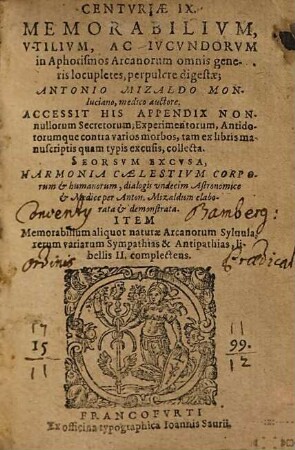 CENTVRIÆ IX.
MEMORABILIVM,
VTILIVM, AC IVCVNDORVM
in Aphorismos Arcanorum omnis gene-
ris locupletes, perpulcre digestæ;
ANTONIO MIZALDO MON-
luciano, medico auctore.
ACCESSIT HIS APPENDIX NON-
nullorum Secretorum, Experimentorum, Antido-
torumque contra varios morbos, tam ex libris ma-
nuscriptis quam typis excusis, collecta.
SEORSVM EXCVSA,
HARMONIA CÆLESTIVM CORPO-
rum & humanorum, dialogis vndecim Astronomicè
& Medicè per Anton. Mizaldum elabo-
rata & demonstrata.
Conventy Bamberg:
ITEM
Memorabilium aliquot naturæ Arcanorum Syluula,
rerum variarum Sympathias & Antipathias, li-
bellis II. complectens.
ordinis Prædicat
17 11
15 99.
11 12
FRANCOFVRTI
Ex officina typographica Ioannis Saurii.